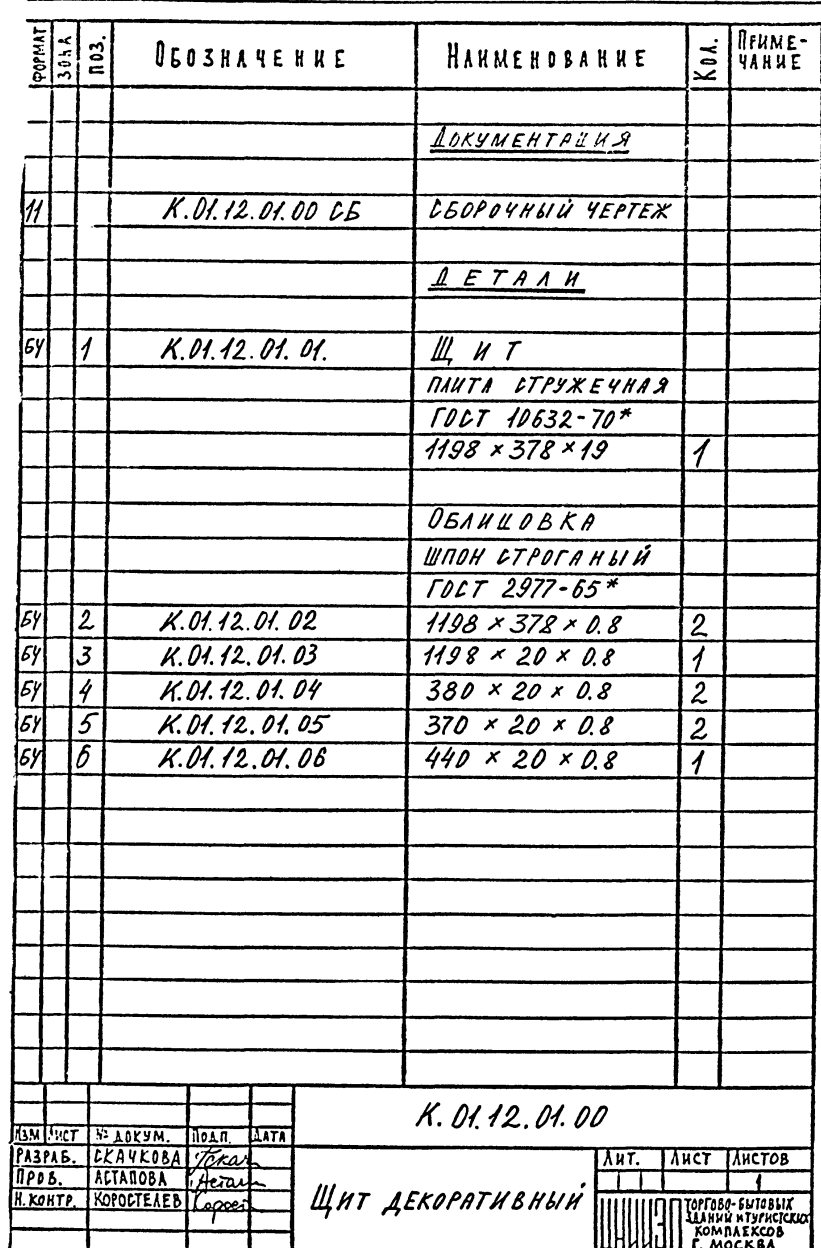 ФОРМАТ ЗОНА ПОЗ. ОБОЗНАЧЕНИЕ НАИМЕНОВАНИЕ КОЛ. ПРИМЕ-ЧАНИЕ
ДОКУМЕНТАЦИЯ
11 К.01.12.01.00 СБ СБОРОЧНЫЙ ЧЕРТЕЖ
ДЕТАЛИ
БЧ 1 К.01.12.01.01. ЩИТ
ПЛИТА СТРУЖЕЧНАЯ
ГОСТ 10632-70*
1198 × 378 × 19 1
ОБЛИЦОВКА
ШПОН СТРОГАНЫЙ
ГОСТ 2977-65*
БЧ 2 К.01.12.01.02 1198 × 378 × 0.8 2
БЧ 3 К.01.12.01.03 1198 × 20 × 0.8 1
БЧ 4 К.01.12.01.04 380 × 20 × 0.8 2
БЧ 5 К.01.12.01.05 370 × 20 × 0.8 2
БЧ 6 К.01.12.01.06 440 × 20 × 0.8 1
К.01.12.01.00
ИЗМ ЛИСТ № ДОКУМ. ПОДП. ДАТА
РАЗРАБ. СКАЧКОВА
ПРОВ. АСТАПОВА
Н.КОНТР. КОРОСТЕЛЕВ
ЩИТ ДЕКОРАТИВНЫЙ
ЛИТ. ЛИСТ ЛИСТОВ
1
ТОРГОВО-БЫТОВЫХ
ЗДАНИЙ И ТУРИСТСКИХ
КОМПЛЕКСОВ
Г. МОСКВА